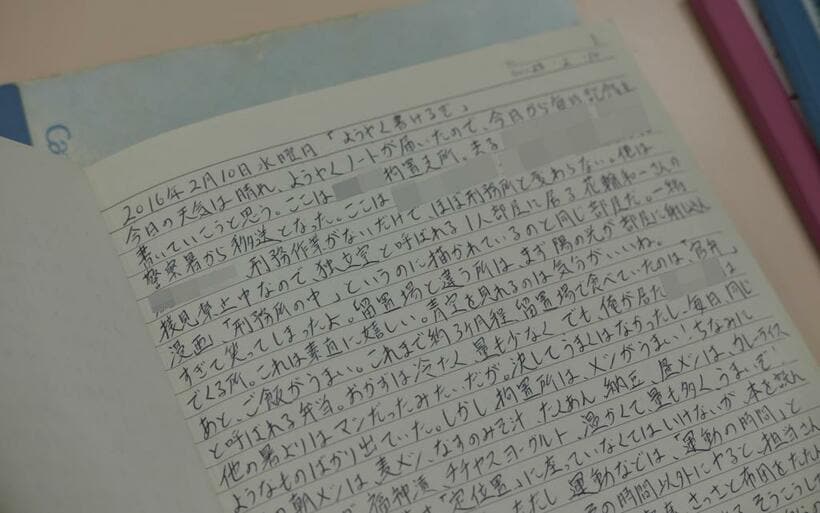 Ca
2016年2月10日水曜日「ようやく書けるぞ」
今日の天気は晴れ、ようやくノートが届いたので、今日から毎日記録を
書いていこうと思う。ここは 拘置支所。
警察署から移送となった。ここは
刑務作業がないだけで、ほぼ刑務所と変わらない。俺は
接見禁止中なので独立室と呼ばれる1人部屋に居る。花輪和一さんの
漫画「刑務所の中」というのに描かれているのと同じ部屋だ。一緒
すぎて笑ってしまったよ。留置場と違う所は、まず陽の光が部屋に射し込ん
でくる所。これは素直に嬉しい。青空を見れるのは気分がいいね。
あと、ご飯がうまい。これまで約3ヶ月程留置場で食べていたのは「官弁」
と呼ばれる弁当。おかずは冷たく量も少なく でも俺が居た は
他の署よりはマシだったみたいだが。決してうまくはなかったし、毎日同じ
ようなものばかり出ていた。しかし拘置所は、メシがうまい!ちなみに
の朝メシは、麦メシ、なすのみそ汁、たくあん、納豆、昼メシは、カレーライス
福神漬、チチヤスヨーグルト、温かくて、量も多くうまいぞ
「定位置」に座っていなくてはいけないが、本を読ん
ただし、運動などは、「運動の時間」と
の時間以外にやると、担当さん
さっさと布団をたたん